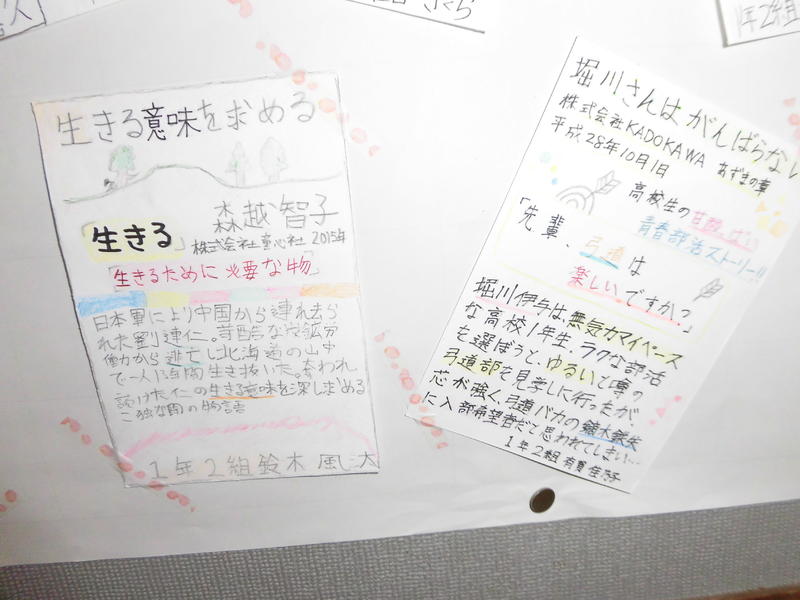 生きる意味を求める
「生きる」
森越智子
株式会社童心社 2015年
「生きるために必要な物」
日本軍により中国から連れ去ら
れた劉連仁。苛酷な炭鉱労
働から逃亡し北海道の山中
で一人
生き抜いた。奪われ
続けた仁の生きる意味を探し求める
孤独な闘の物語
1年2組鈴木風汰
堀川さんはがんばらない
株式会社KADOKAWA あずまの章
平成28年10月1日
高校生の甘酸っぱい
青春部活ストーリー!!
「先輩、弓道は
楽しいですか?」
堀川伊与は、無気力マイペース
な高校1年生。ラクな部活
を選ぼうと、ゆるいと噂の
弓道部を見学しに行ったが、
芯が強く弓道バカの
に入部希望者だと思われてしまい…
1年2組 有賀佳乃子
さくら
1年2組